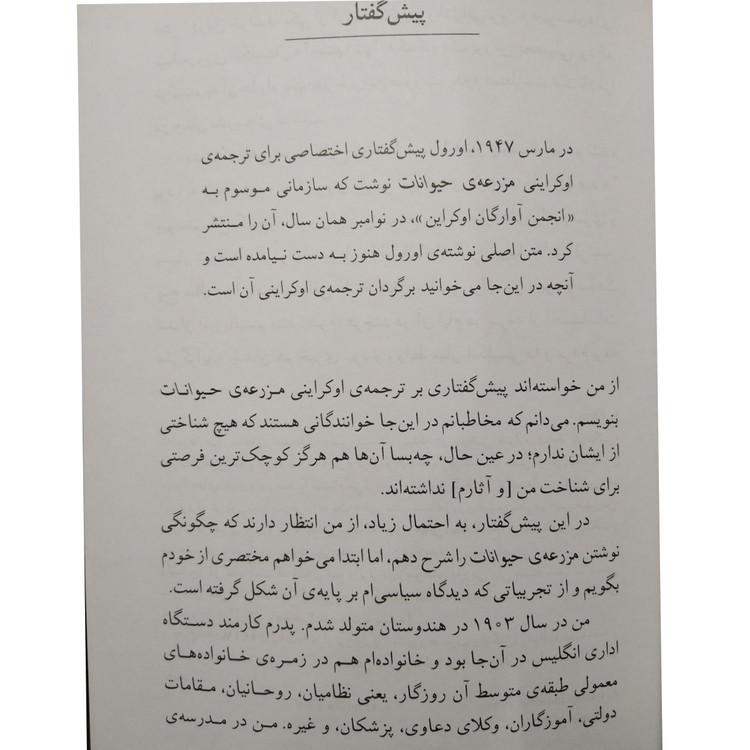 پیش‌گفتار
در مارس ۱۹۴۷، اورول پیش‌گفتاری اختصاصی برای ترجمه‌ی
اوکراینی مزرعه‌ی حیوانات نوشت که سازمانی موسوم به
«انجمن آوارگان اوکراین»، در نوامبر همان سال، آن را منتشر
کرد. متن اصلی نوشته‌ی اورول هنوز به دست نیامده است و
آنچه در این‌جا می‌خوانید برگردان ترجمه‌ی اوکراینی آن است.
از من خواسته‌اند پیش‌گفتاری بر ترجمه‌ی اوکراینی مزرعه‌ی حیوانات
بنویسم. می‌دانم که مخاطبانم در این‌جا خوانندگانی هستند که هیچ شناختی
از ایشان ندارم؛ در عین حال، چه‌بسا آن‌ها هم هرگز کوچک‌ترین فرصتی
برای شناخت من [و آثارم] نداشته‌اند.
در این پیش‌گفتار، به احتمال زیاد، از من انتظار دارند که چگونگی
نوشتن مزرعه‌ی حیوانات را شرح دهم، اما ابتدا می‌خواهم مختصری از خودم
بگویم و از تجربیاتی که دیدگاه سیاسی‌ام بر پایه‌ی آن شکل گرفته است.
من در سال ۱۹۰۳ در هندوستان متولد شدم. پدرم کارمند دستگاه
اداری انگلیس در آن‌جا بود و خانواده‌ام هم در زمره‌ی خانواده‌های
معمولی طبقه‌ی متوسط آن روزگار، یعنی نظامیان، روحانیان، مقامات
دولتی، آموزگاران، وکلای دعاوی، پزشکان، و غیره. من در مدرسه‌ی